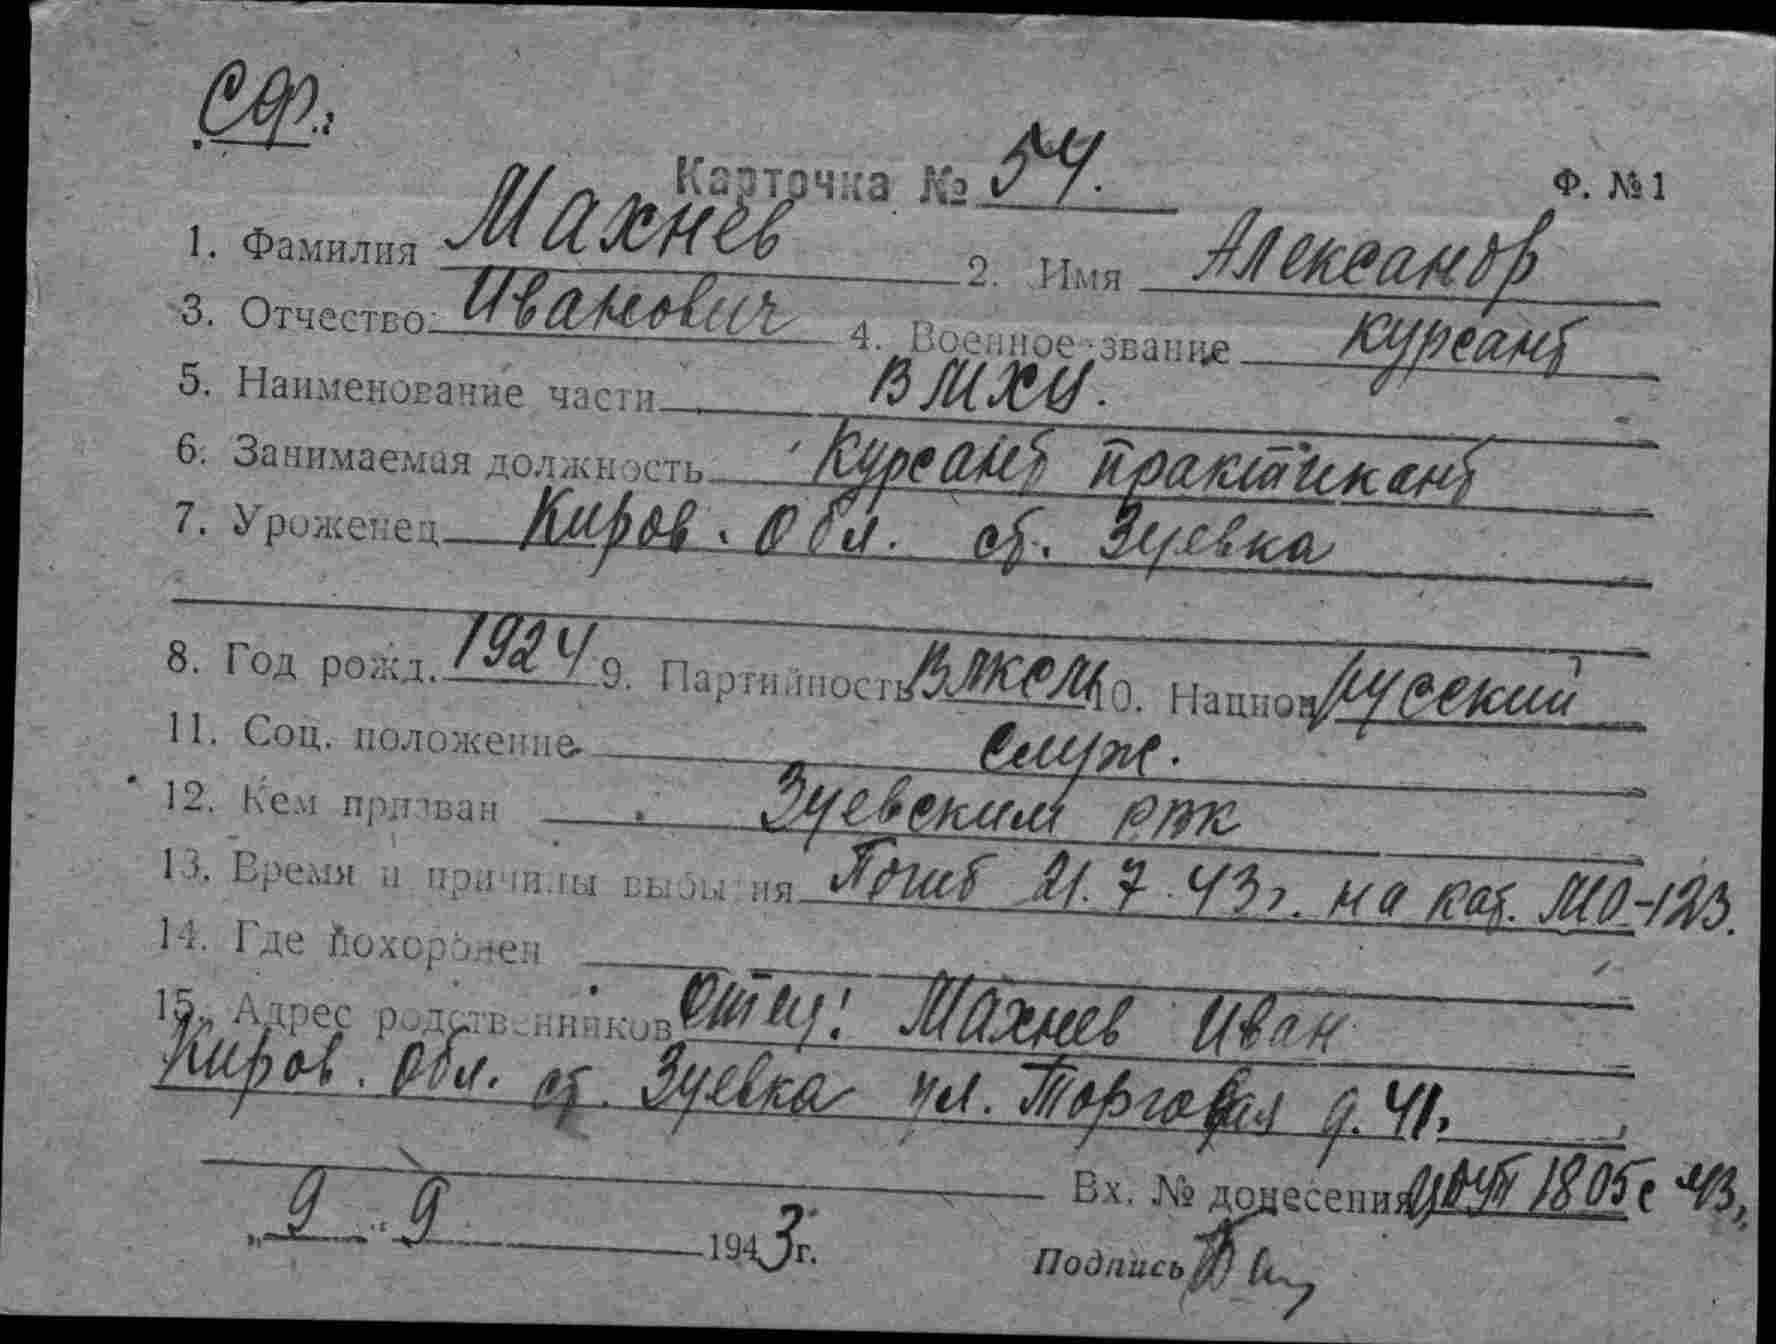 СФ.
Карточка № 54.
Ф. №1
1. Фамилия Махнев 2. Имя Александр
3. Отчество Иванович 4. Военное звание курсант
5. Наименование части ВМХУ.
6. Занимаемая должность Курсант практикант
7. Уроженец Киров. Обл. ст. Зуевка
8. Год рожд. 1924 9. Партийность ВЛКСМ 10. Национ. русский
11. Соц. положение служ.
12. Кем призван Зуевским РВК
13. Время и причины выбытия Погиб 21.7.43г. на кат. МО-123.
14. Где похоронен
15. Адрес родственников отец: Махнев Иван
Киров. Обл. ст. Зуевка ул. Торговая д. 41.
Вх. № донесения 1805с 43.
„9“ 9 1943г.
Подпись